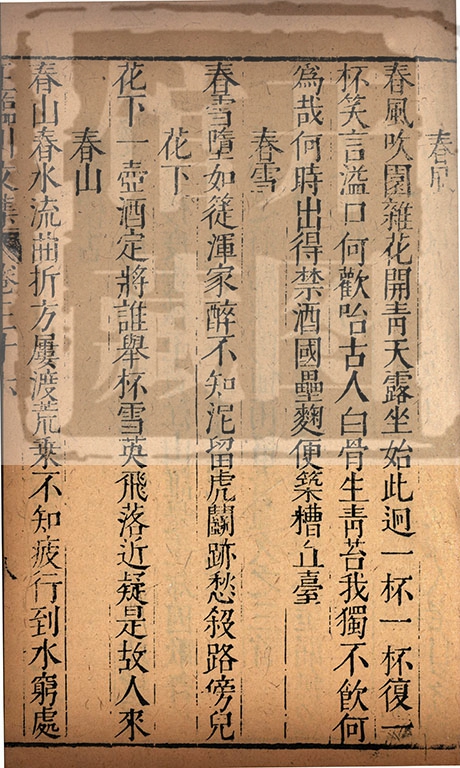 春風
春風吹園雜花開靑天露坐始此迴一杯一杯復一
杯笑言溢口何歡咍古人白骨生靑苔我獨不飮何
爲哉何時出得禁酒國壘麴便築糟丘臺
春雪
春雪墮如簁渾家醉不知泥留虎鬭跡愁殺路傍兒
花下
花下一壺酒定將誰舉杯雪英飛落近疑是故人來
春山
春山春水流曲折方屢渡荒乗不知疲行到水窮處
王臨川文集卷三十六
八